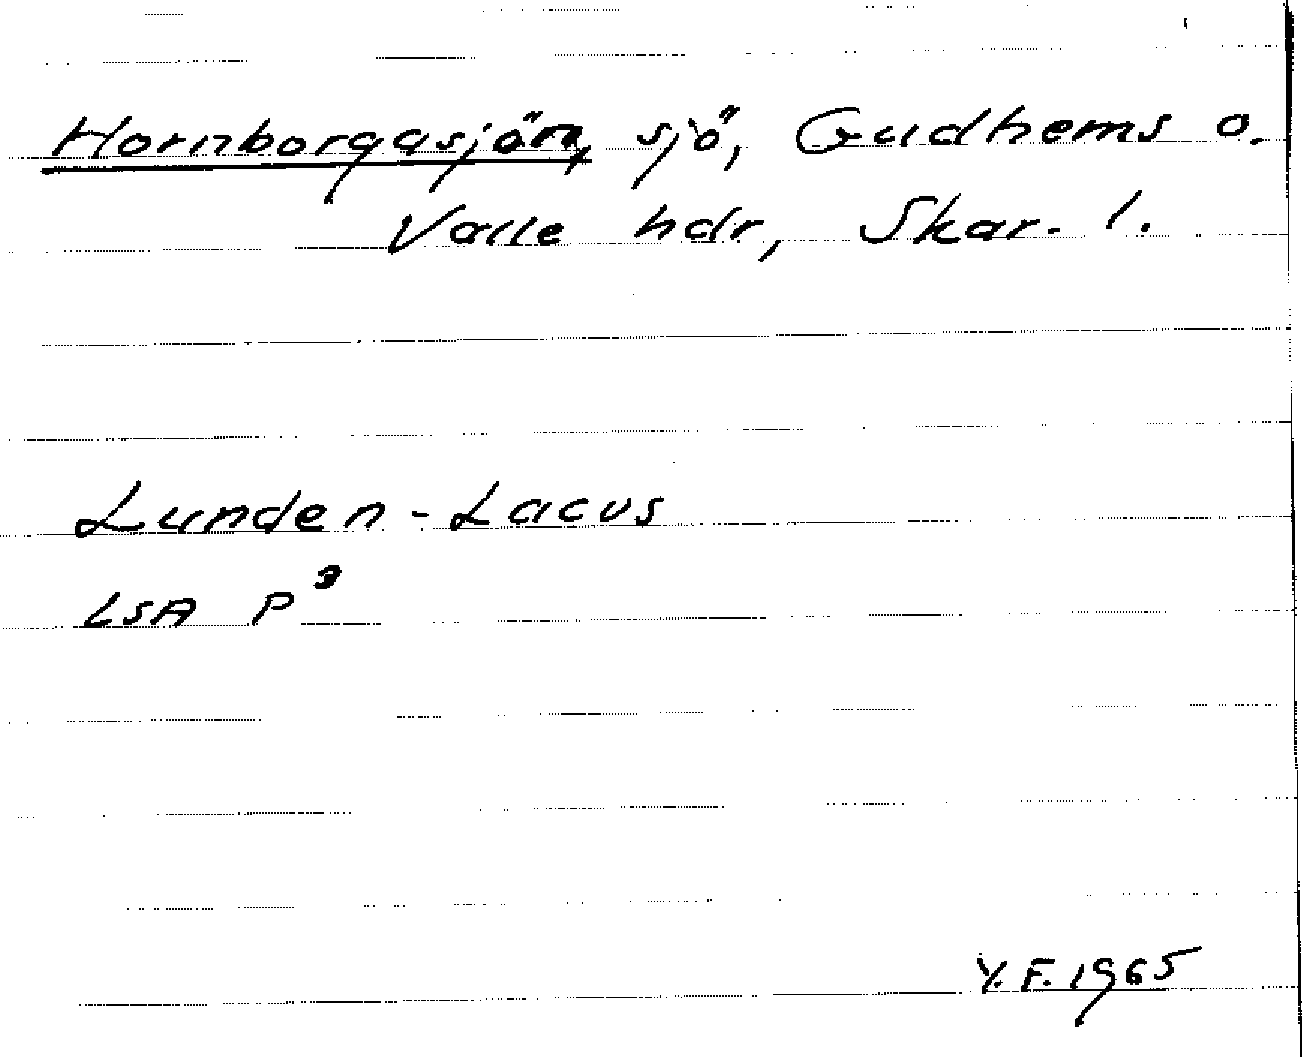 Hornborgasjön, sjö, Gudhems o.
Valle hdr, Skar. l.
Lunden - Lacus
LSA P³
Y.F. 1965